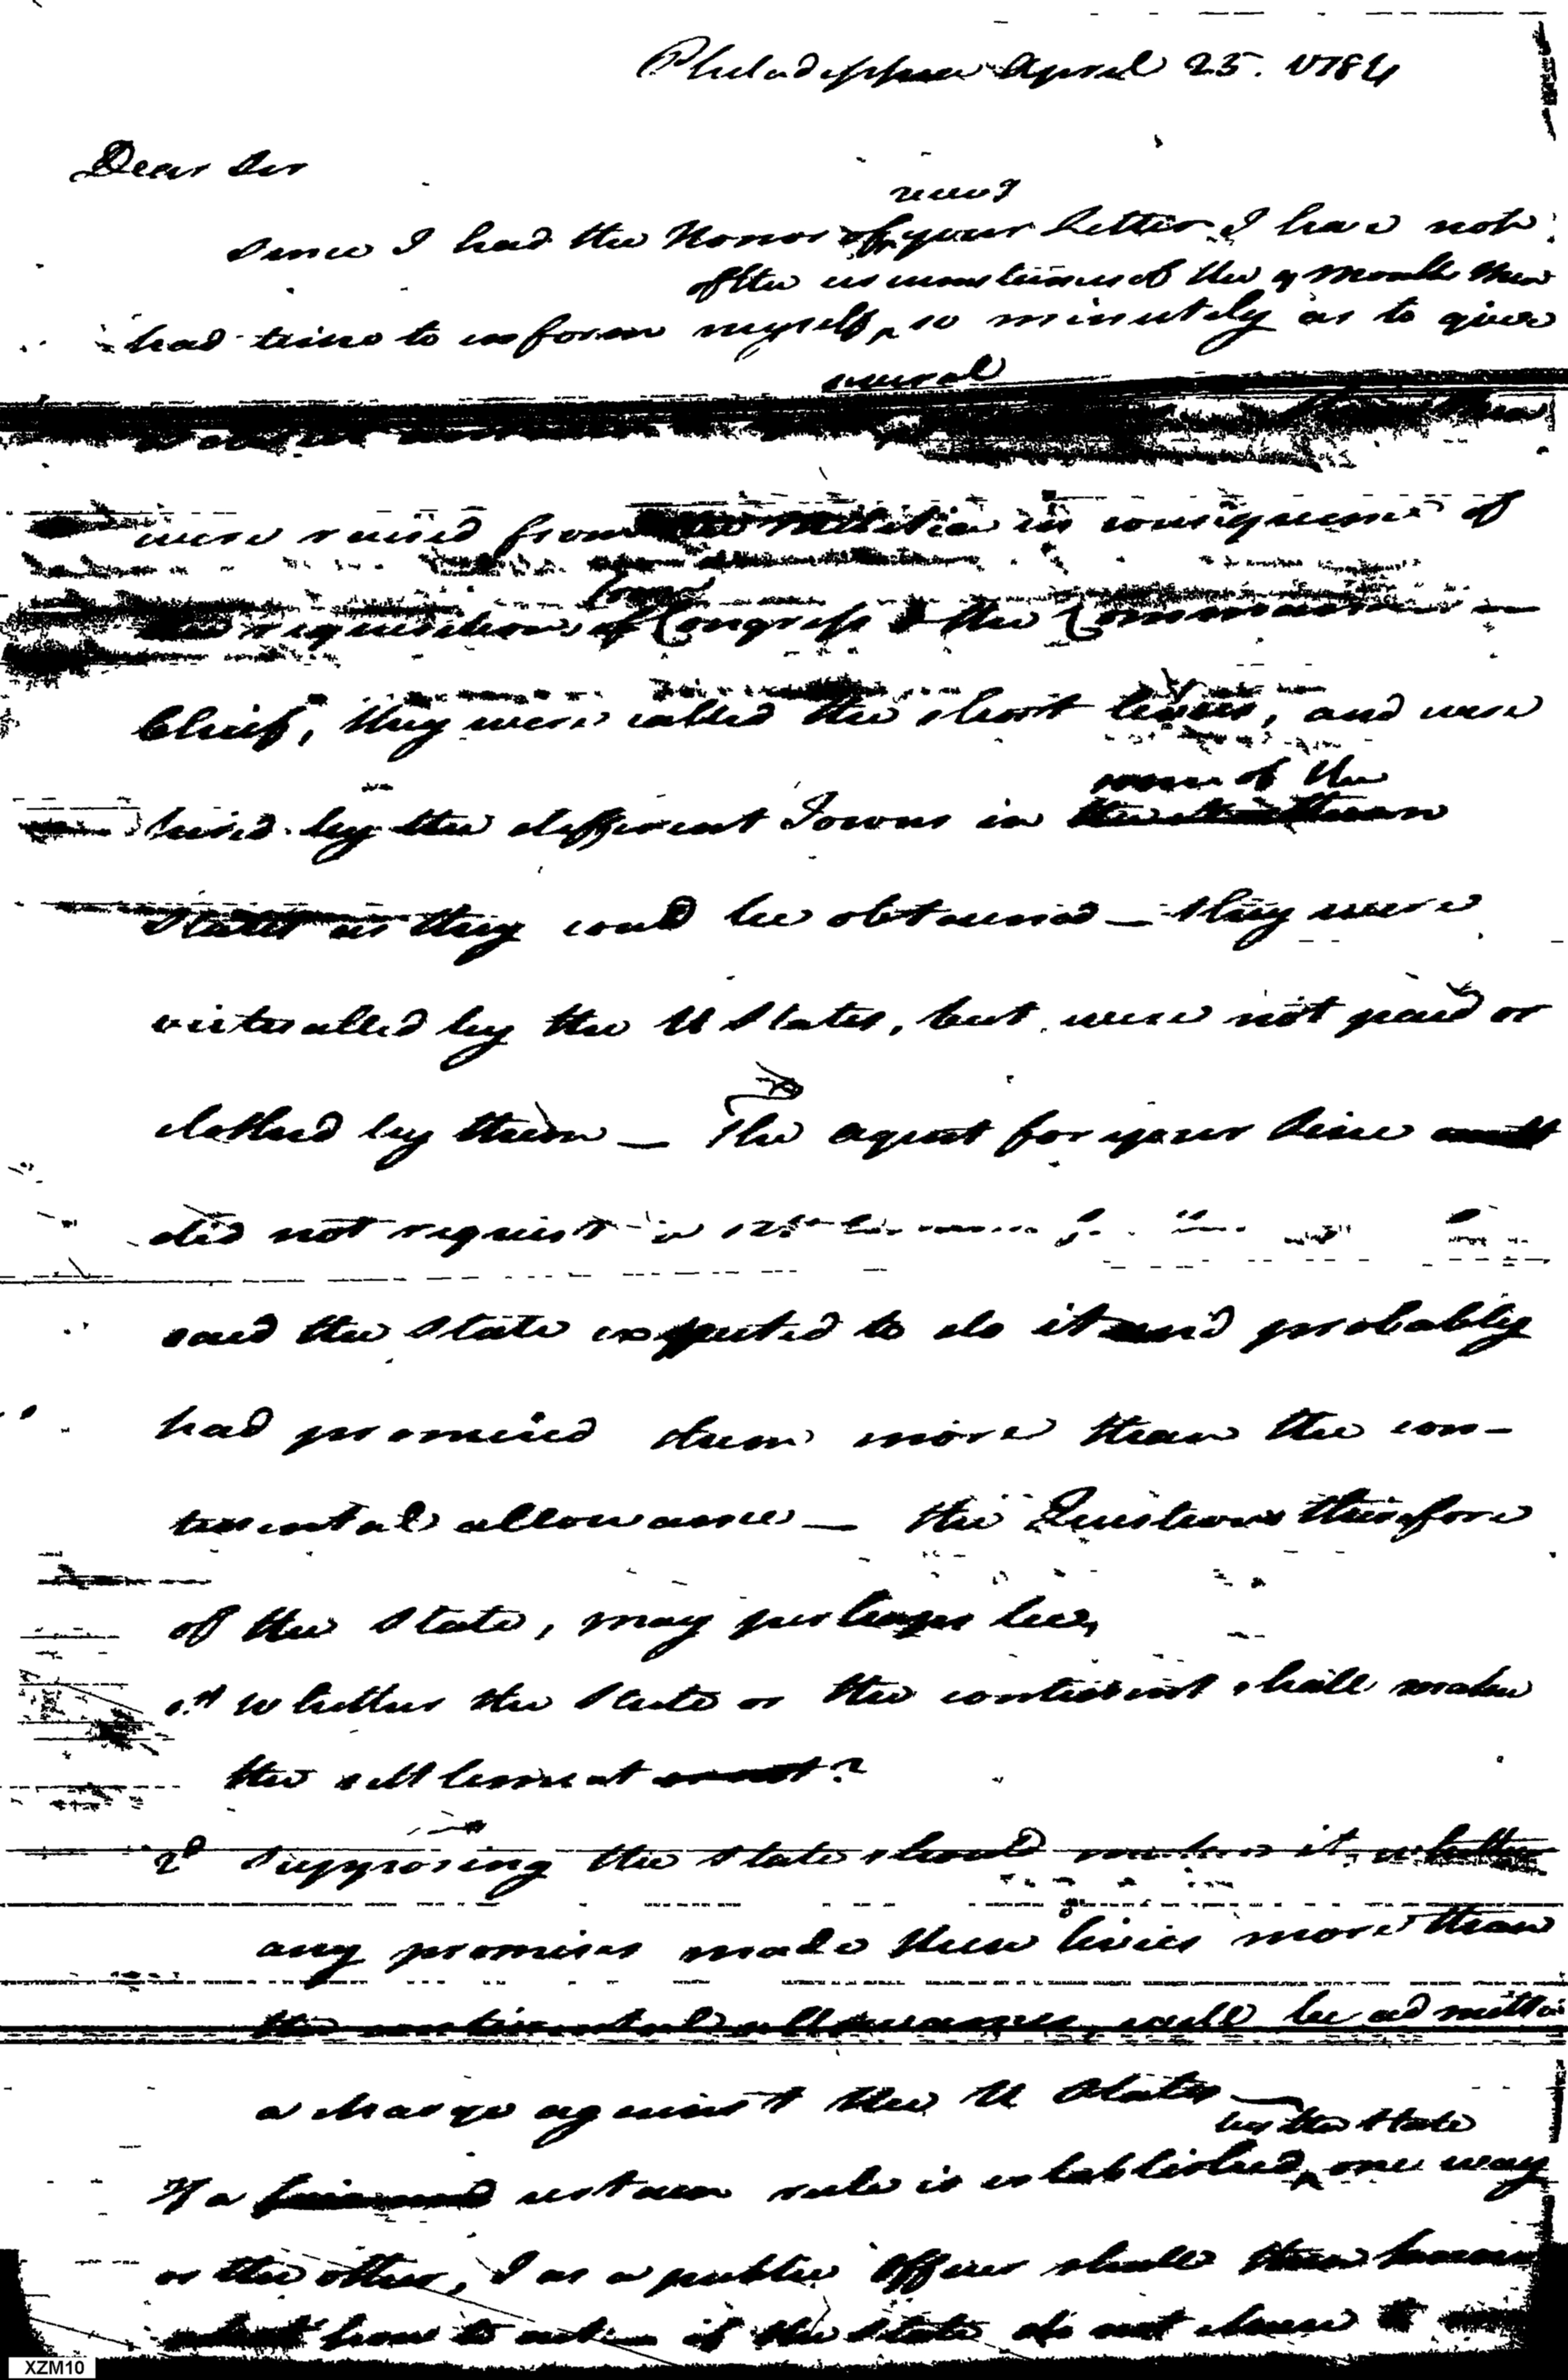 Philadelphia April 25. 1784
Dear Sir
recvg
Since I had the Honor of your Letter I have not
of the circumstances of the 9 Months Men
had time to inform myself, so minutely as to give
several
were raised from the Militia in consequence of
the requisitions of Congress & the Commander in
Chief, they were called the short levies, and were
hired by the different Towns in the
some of the
States as they could be obtained — they were
victualled by the U States, but were not paid or
clothed by them — The agent for your Line
did not request a settlement
said the State expected to do it and probably
had promised them more than the con-
tinental allowance — the Questions therefore
of the State, may perhaps be,
1st Whether the State or the continent shall make
the settlement or not?
2d Supposing the State should make it, whether
any promises made these levies more than
the continental allowance, will be admitted
a charge against the U States —
by the State
If a certain rule is established, one way
or the other, I as a public Officer shall then know
how to act — if the State do not chuse to
XZM10